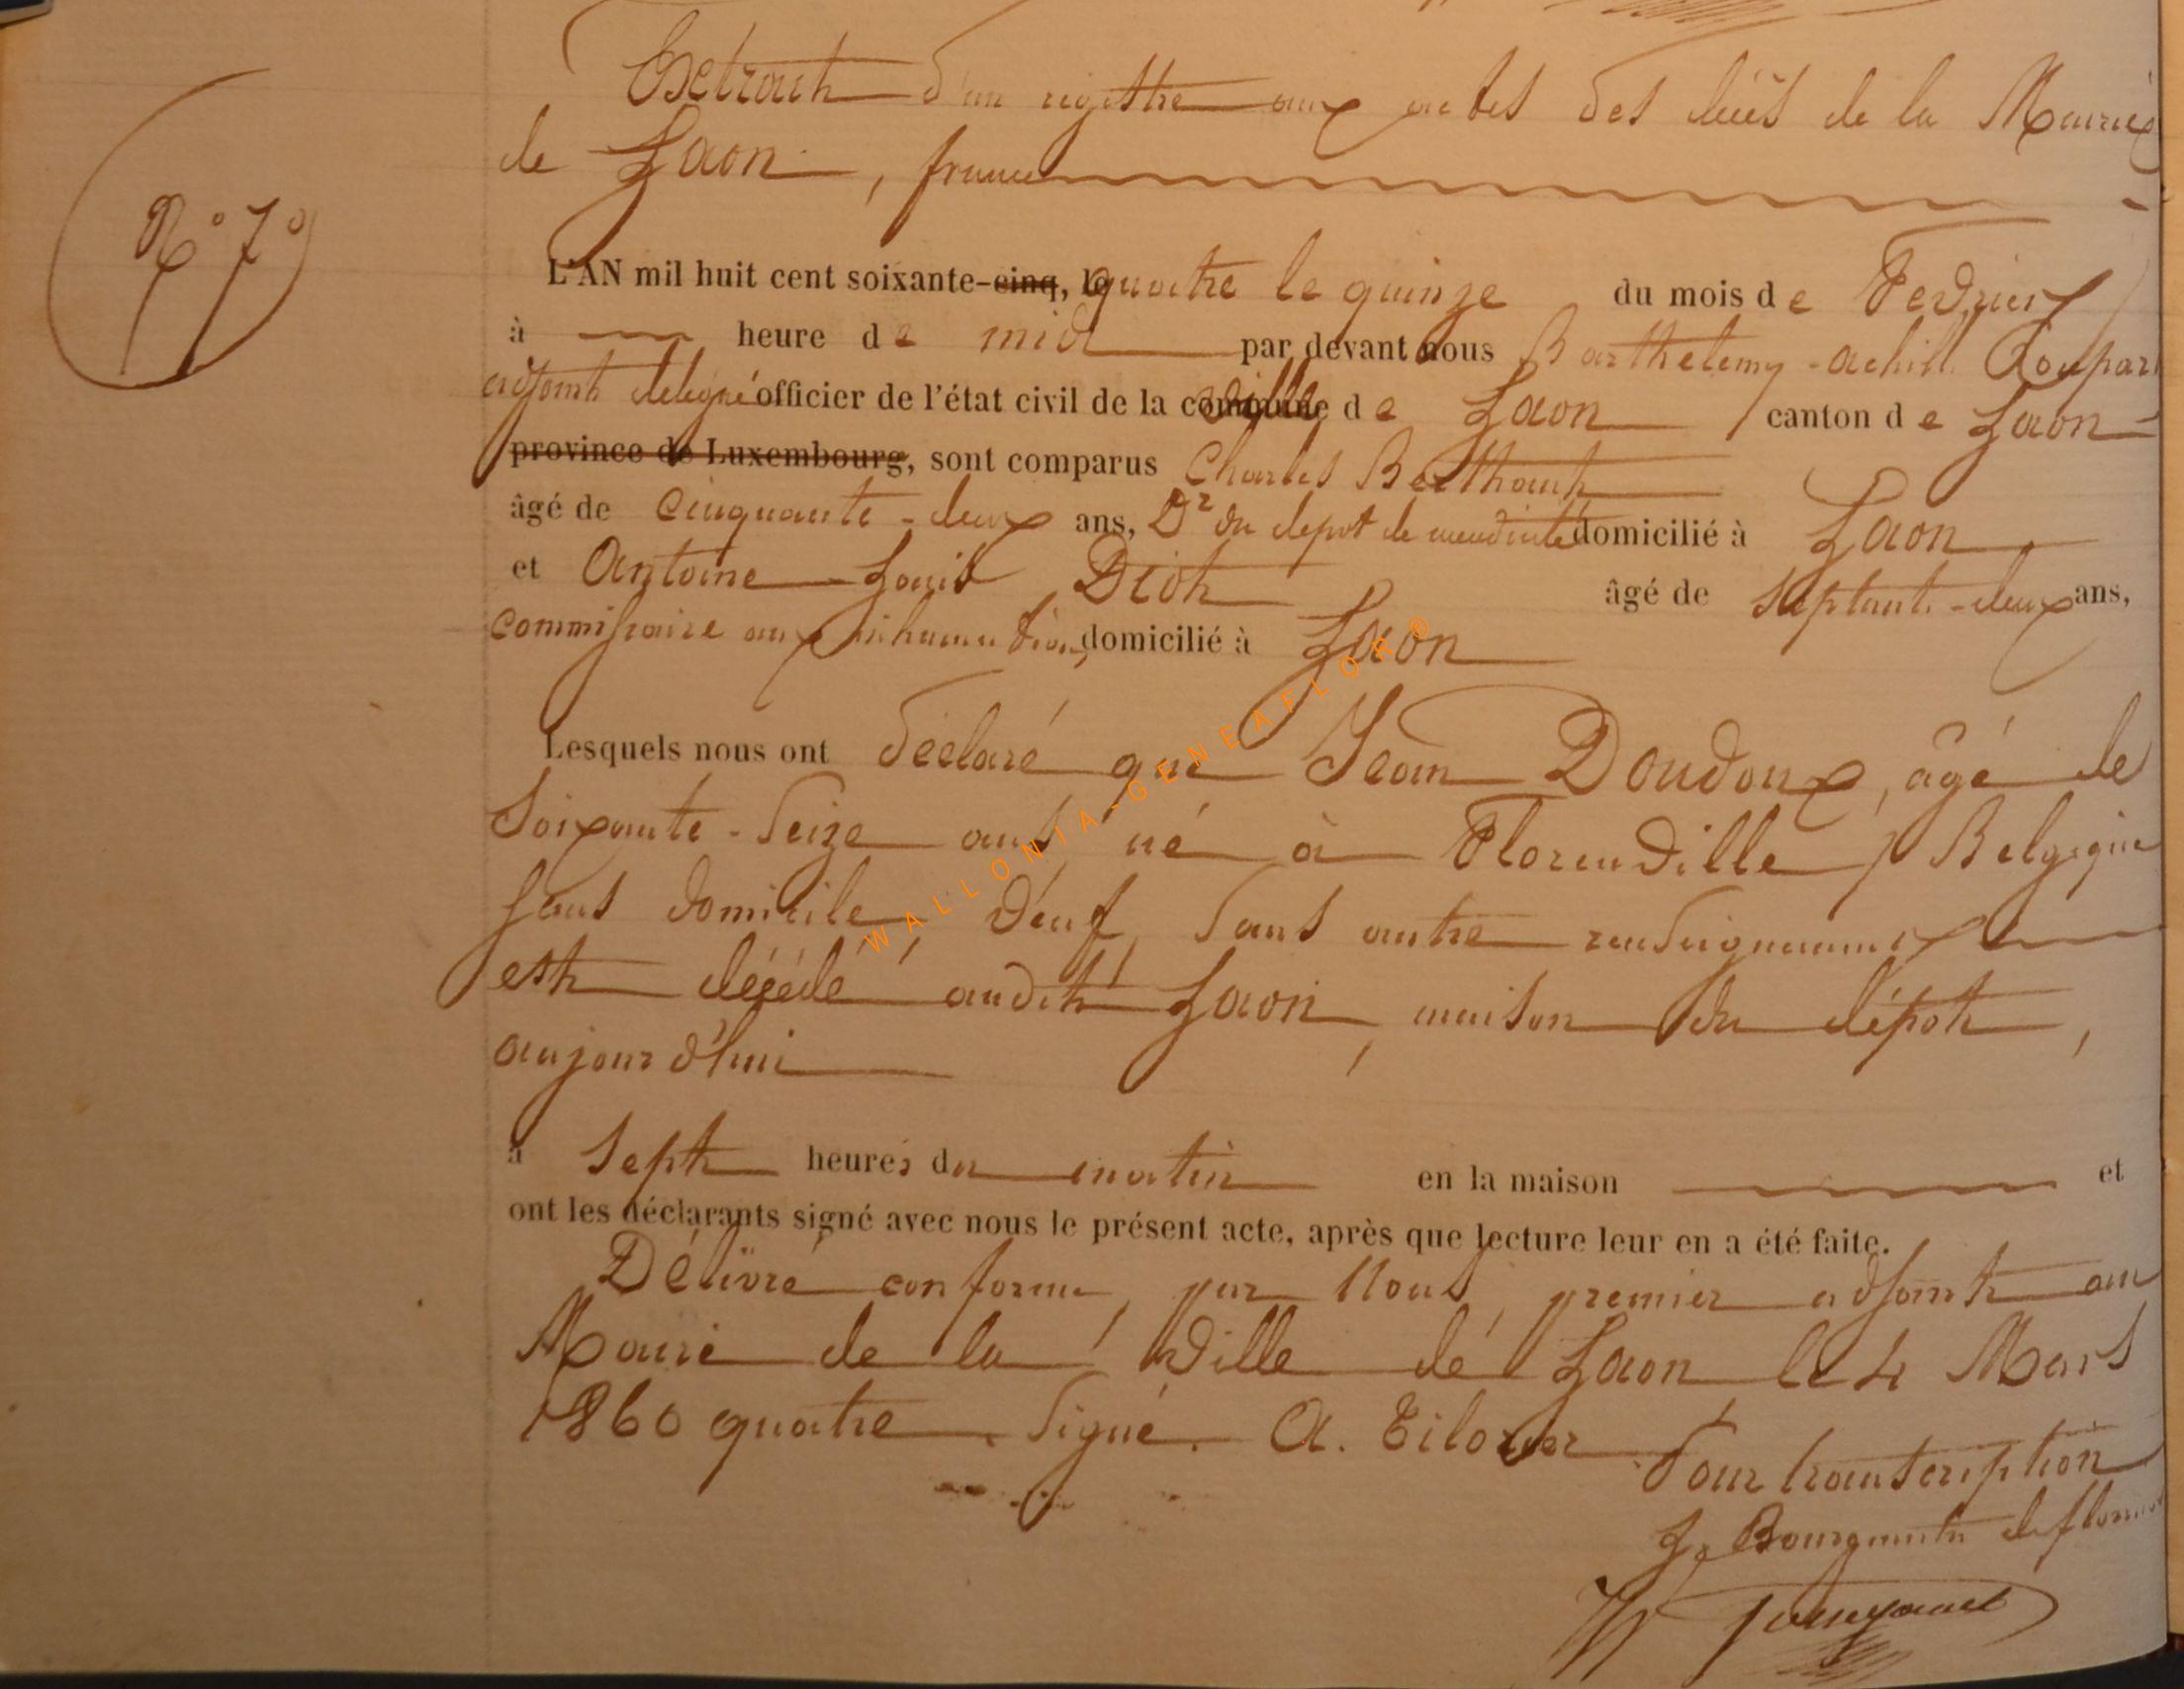 Extrait d'un registre aux actes des décès de la Mairie
de Laon, france
N° 7
L'AN mil huit cent soixante-cinq, le quatre le quinze du mois de Fevrier
à heure de midi par devant nous Barthelemy-achill
adjoint délégué officier de l'état civil de la commune ville de Laon canton de Laon
province de Luxembourg, sont comparus Charles Berthault
âgé de Cinquante-deux ans, Dr du depot de mendicité domicilié à Laon
et Antoine Louis Diot âgé de septante-deux ans,
commissaire aux inhumations, domicilié à Laon
Lesquels nous ont déclaré que Jean Doudoux, âgé de
Soixante-Seize ans né à Florenville, Belgique
sans domicile, veuf, sans autre renseignement
est décédé audit Laon, maison du dépôt,
aujourd'hui
à Sept heures du matin en la maison et
ont les déclarants signé avec nous le présent acte, après que lecture leur en a été faite.
Délivré conforme, par Nous, premier adjoint au
Maire de la Ville de Laon le 4 Mars
1860 quatre. Signé. A.
Pour transcription
Le Bourgmestre de
WALLONIA-GENEAFLOR®